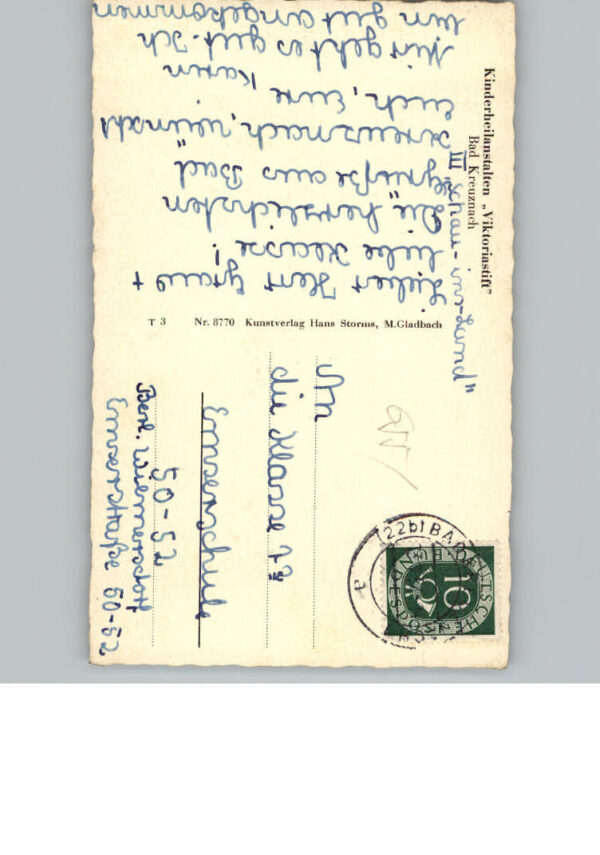 Kinderheilanstalten „Viktoriastift"
Bad Kreuznach
III „Schau-ins-Land"
Lieber Herr +
liebe Klasse!
Die herzlichsten
Grüße aus Bad
Kreuznach, wünscht
Euch, Eure Karin
Mir geht es gut. Ich
bin gut angekommen
T 3 Nr. 8770 Kunstverlag Hans Storms, M.Gladbach
An
die Klasse
Emserschule
50-52
Berl. Wilmersdorf
Emserstraße 50-52
(22b) BA
DEUTSCHE BUNDESPOST
10